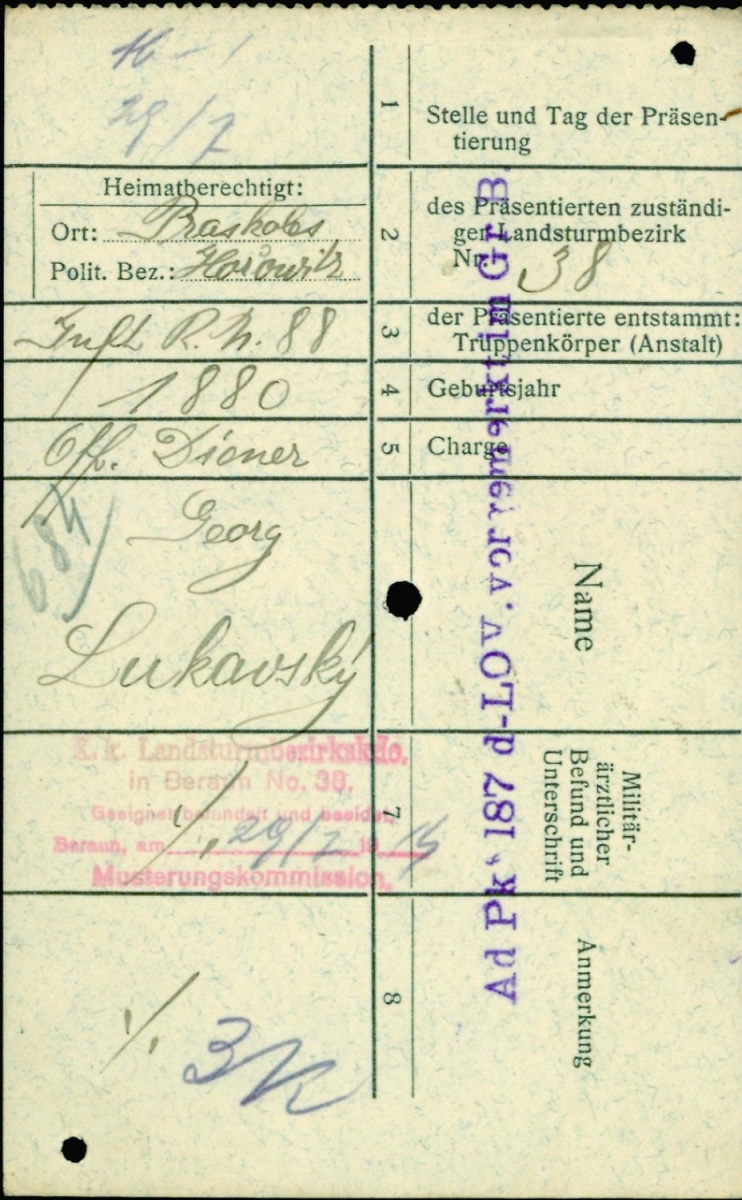 29/7
1
Stelle und Tag der Präsen-
tierung
Heimatberechtigt:
Ort: Praskoles
Polit. Bez.: Hořowitz
2
des Präsentierten zuständi-
gen Landsturmbezirk
Nr. 38
Inft R. N. 88
3
der Präsentierte entstammt:
Truppenkörper (Anstalt)
1880
4
Geburtsjahr
Off. Diener
5
Charge
684
Georg
Lukavský
Name
K. k. Landsturmbezirkskdo.
in Beraun No. 38.
Geeignet befundet und beeidet,
Beraun, am 29/7 19
Musterungskommission.
7
Militär-
ärztlicher
Befund und
Unterschrift
8
Anmerkung
Ad Pk 187
Gr B.